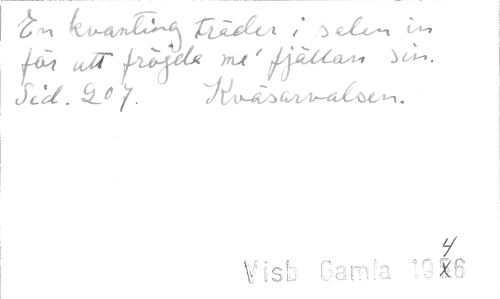 En kvanting träder i salen in
för att fröjda me' fjällan sin.
Sid. 207. Kväsarvalsen.
Visb Gamla 1946